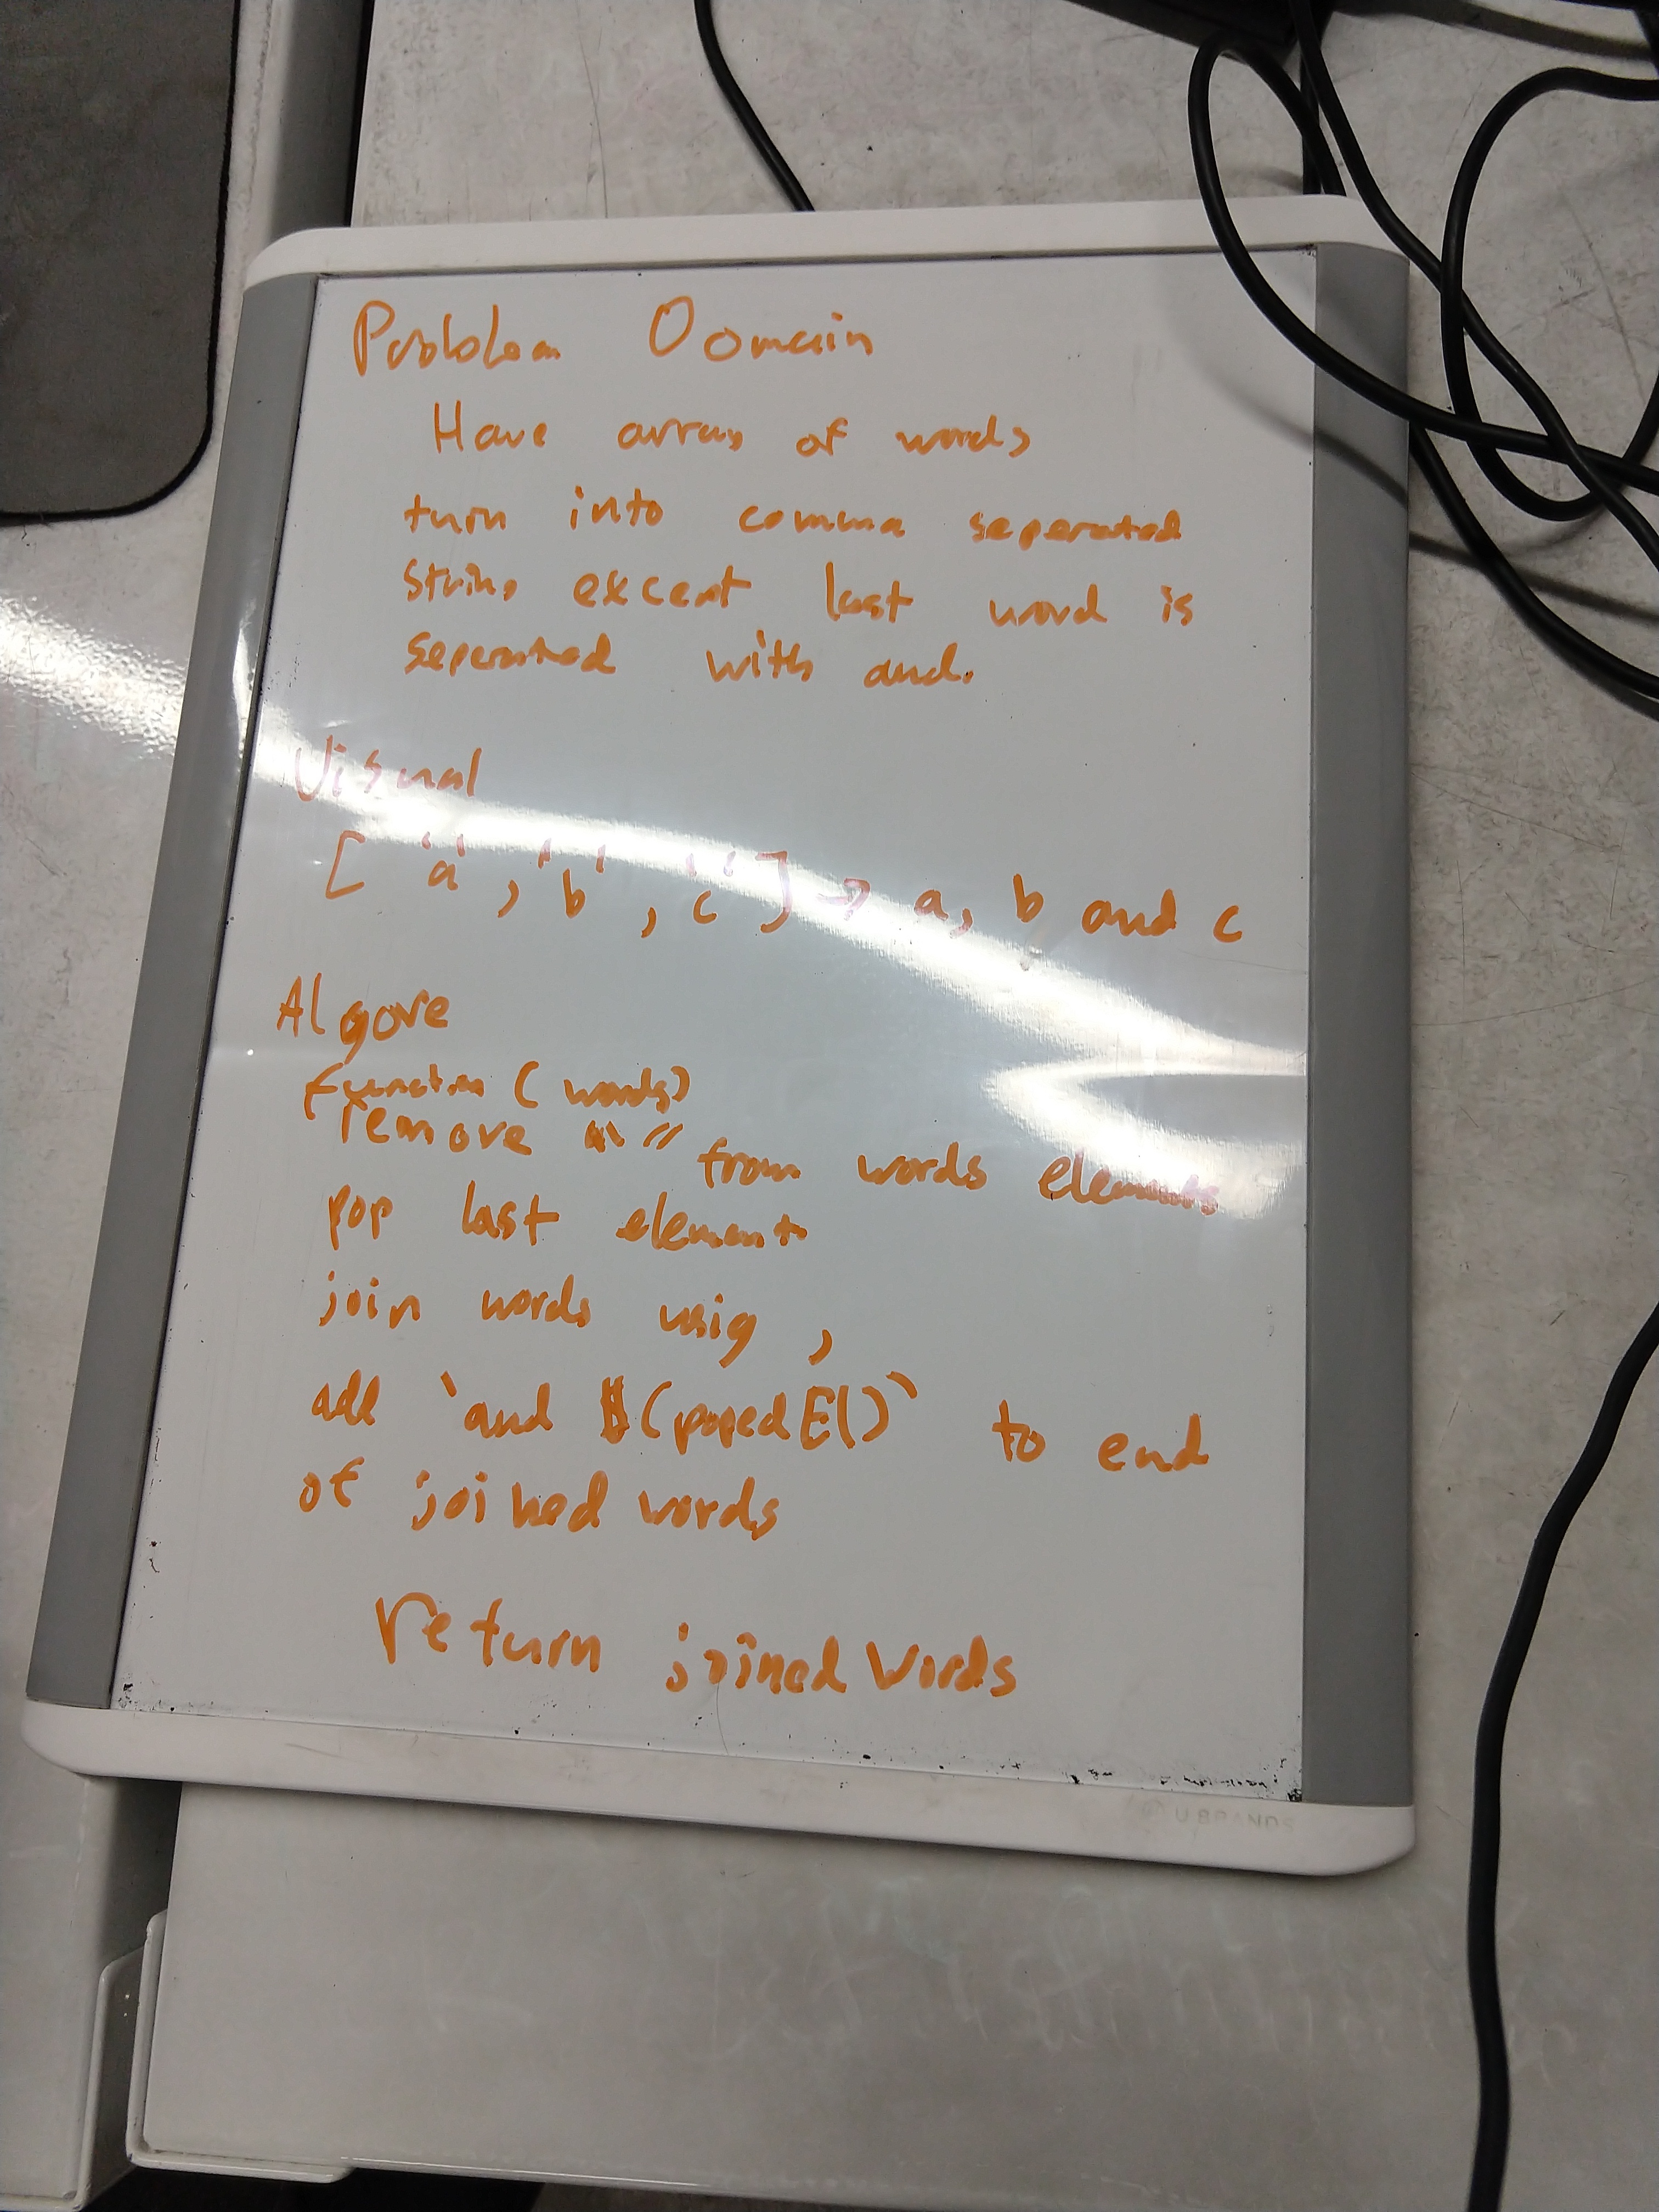 Problem Domain
Have array of words
turn into comma seperated
string except last word is
seperated with and.
Visual
['a', 'b', 'c'] → a, b and c
Algore
function (words)
remove "" from words elements
pop last element
join words usig ,
add `and $(popedEl)` to end
of joined words
return joinedWords
U BRANDS